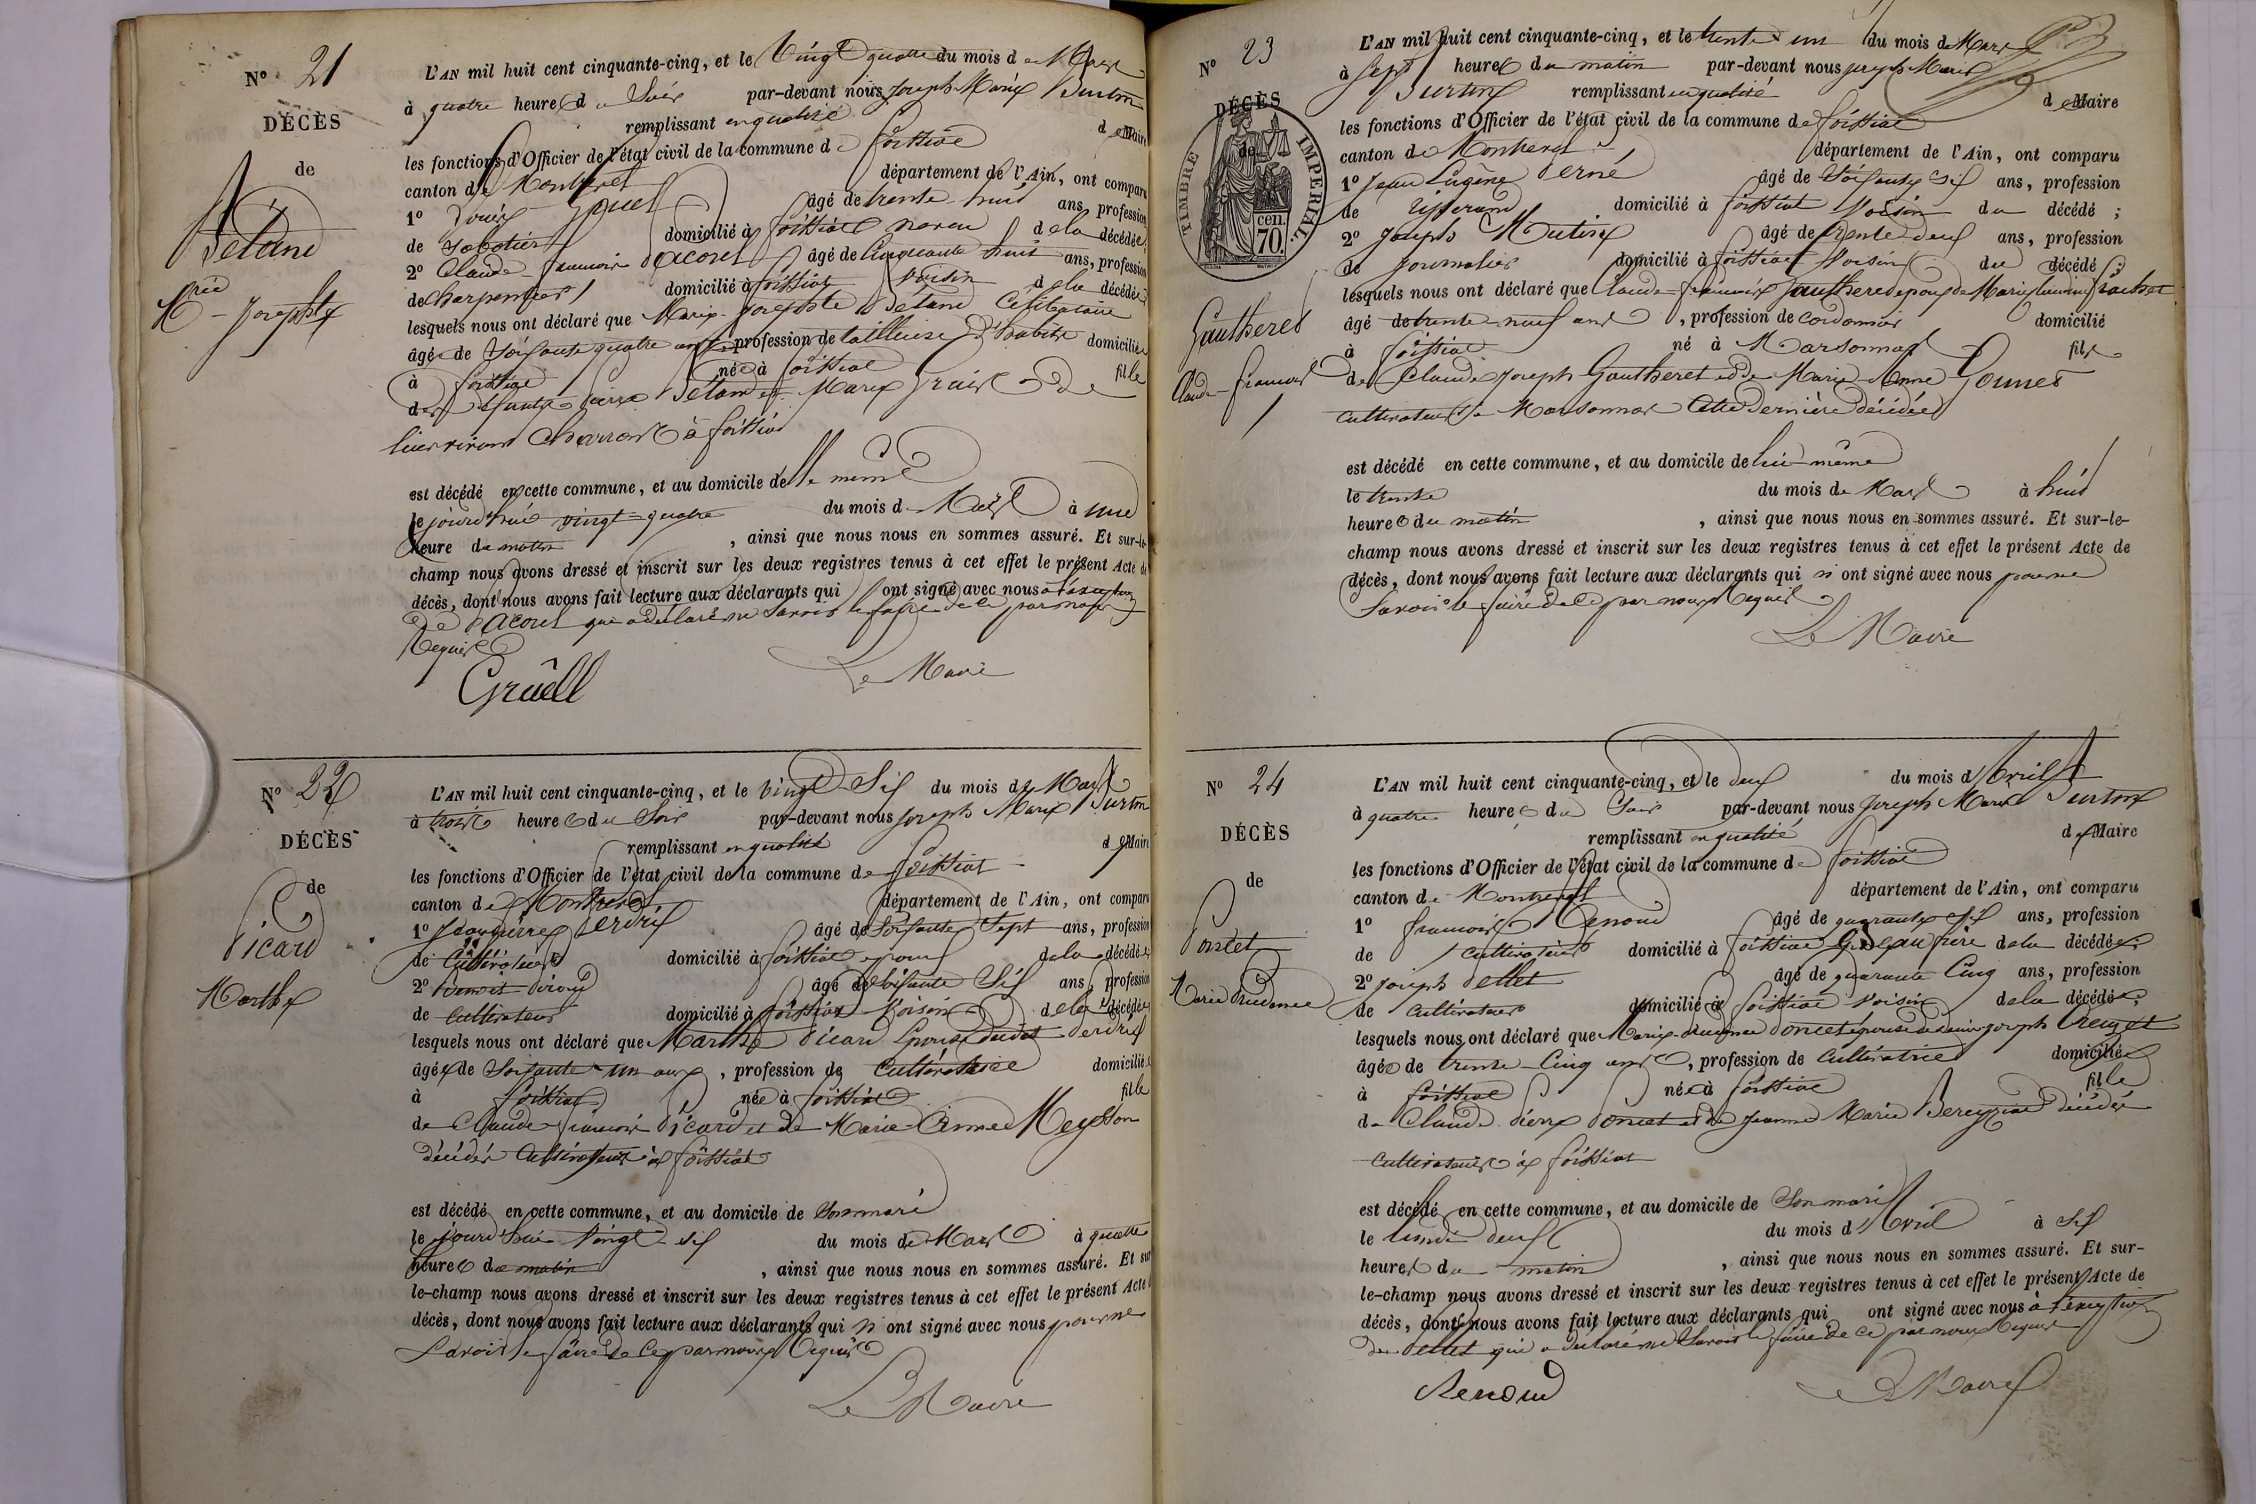 N° 21
DÉCÈS
de
Betand
Mrie Josephte
L'AN mil huit cent cinquante-cinq, et le Vingt quatre du mois de Mars
à quatre heures du Soir par-devant nous Joseph Marie Burtin
remplissant en qualité de Maire
les fonctions d'Officier de l'état civil de la commune de foissiat
canton de Montrevel département de l'Ain, ont comparu
1° âgé de trente huit ans, profession
de Sabotier domicilié à foissiat neveu de la décédée
2° Claude francois âgé de Cinquante huit ans, profession
de Charpentier domicilié à foissiat voisin de la décédée
lesquels nous ont déclaré que Marie Josephte Betand Célibataire
âgée de Soissante quatre ans profession de tailleuse d'habits domiciliée
à foissiat née à foissiat fille
de Betand et Marie
à foissiat
est décédé en cette commune, et au domicile de Elle même
le jourd'hui vingt quatre du mois de Mars à une
heure du matin , ainsi que nous nous en sommes assuré. Et sur-le-
champ nous avons dressé et inscrit sur les deux registres tenus à cet effet le présent Acte de
décès, dont nous avons fait lecture aux déclarants qui ont signé avec nous à l'exception
de que a déclaré ne Savoir le faire de ce par nous
Requis
Gruêll Le Maire
N° 22
DÉCÈS
de
Picard
Marthe
L'AN mil huit cent cinquante-cinq, et le vingt Six du mois de Mars
à trois heures du Soir par-devant nous Joseph Marie Burtin
remplissant en qualité de Maire
les fonctions d'Officier de l'état civil de la commune de foissiat
canton de Montrevel département de l'Ain, ont comparu
1° Perdrix âgé de Soissante Sept ans, profession
de Cultivateur domicilié à foissiat epoux de la décédée
2° Benoit âgé de Soissante Six ans, profession
de Cultivateur domicilié à foissiat Voisin de la décédée
lesquels nous ont déclaré que Marthe Picard Epouse dudit Perdrix
âgée de Soissante un ans , profession de Cultivatrice domiciliée
à foissiat née à foissiat fille
de Claude francois Picard et de Marie Anne Meysson
décédés Cultivateurs à foissiat
est décédé en cette commune, et au domicile de Son mari
le jourd'hui Vingt six du mois de Mars à quatre
heures du matin , ainsi que nous nous en sommes assuré. Et sur
le-champ nous avons dressé et inscrit sur les deux registres tenus à cet effet le présent Acte
décès, dont nous avons fait lecture aux déclarants qui n'ont signé avec nous pour ne
Savoir le faire de ce par nous Requis
Le Maire
N° 23
DÉCÈS
de
TIMBRE IMPERIAL.
70 cen.
Gautheret
Claude francois
L'AN mil huit cent cinquante-cinq, et le trente un du mois de Mars
à Sept heures du matin par-devant nous joseph Marie
Burtin remplissant en qualité de Maire
les fonctions d'Officier de l'état civil de la commune de foissiat
canton de Montrevel département de l'Ain, ont comparu
1° Jean Eugène Perné âgé de Soissante Six ans, profession
de tisserand domicilié à foissiat Voisin du décédé ;
2° Joseph Mutin âgé de trente deux ans, profession
de journalier domicilié à foissiat Voisin du décédé ;
lesquels nous ont déclaré que Claude francois Gautheret époux de Marie
âgé de trente neuf ans , profession de Cordonnier domicilié
à foissiat né à Marsonnas fils
de Claude Joseph Gautheret et de Marie Anne
cultivateurs à Marsonnas Cette dernière décédée
est décédé en cette commune, et au domicile de lui même
le trente du mois de Mars à huit
heures du matin , ainsi que nous nous en sommes assuré. Et sur-le-
champ nous avons dressé et inscrit sur les deux registres tenus à cet effet le présent Acte de
décès, dont nous avons fait lecture aux déclarants qui n'ont signé avec nous pour ne
Savoir le faire de ce par nous Requis
Le Maire
N° 24
DÉCÈS
de
Poncet
Marie Prudence
L'AN mil huit cent cinquante-cinq, et le deux du mois d'Avril
à quatre heures du Soir par-devant nous Joseph Marie Burtin
remplissant en qualité de Maire
les fonctions d'Officier de l'état civil de la commune de foissiat
canton de Montrevel département de l'Ain, ont comparu
1° francois Renoud âgé de quarante six ans, profession
de Cultivateur domicilié à foissiat Beau frère de la décédée;
2° joseph Pellet âgé de quarante Cinq ans, profession
de Cultivateur domicilié à foissiat Voisin de la décédée;
lesquels nous ont déclaré que Marie Prudence Poncet épouse de joseph
âgée de trente Cinq ans , profession de Cultivatrice domiciliée
à foissiat née à foissiat fille
de Claude Pierre Poncet et de Jeanne Marie Bereyziat décédés
Cultivateurs à foissiat
est décédé en cette commune, et au domicile de Son mari
le lundi deux du mois d'Avril à Six
heures du matin , ainsi que nous nous en sommes assuré. Et sur-
le-champ nous avons dressé et inscrit sur les deux registres tenus à cet effet le présent Acte de
décès, dont nous avons fait lecture aux déclarants qui ont signé avec nous à l'exception
de Pellet qui a déclaré ne Savoir le faire de ce par nous Requis
Renoud Le Maire